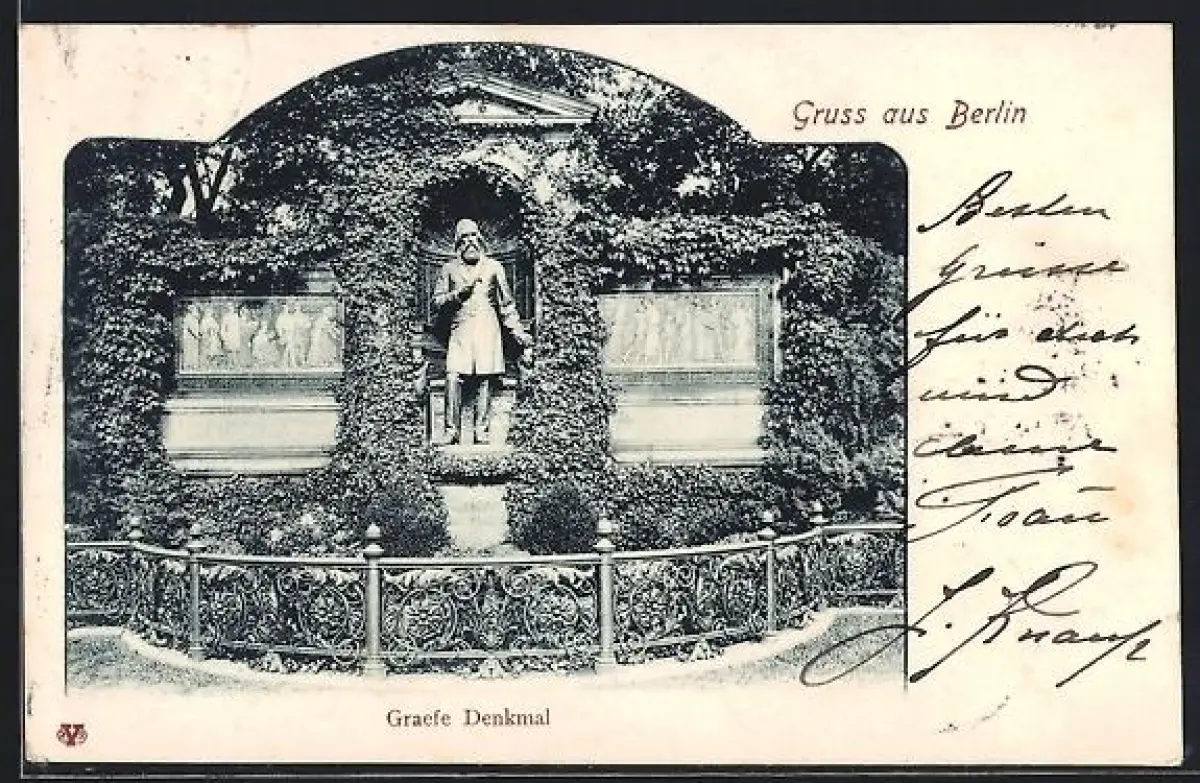 Gruss aus Berlin
Besten
Grüsse
für dich
und
deine
Frau
J. Knaup
Graefe Denkmal